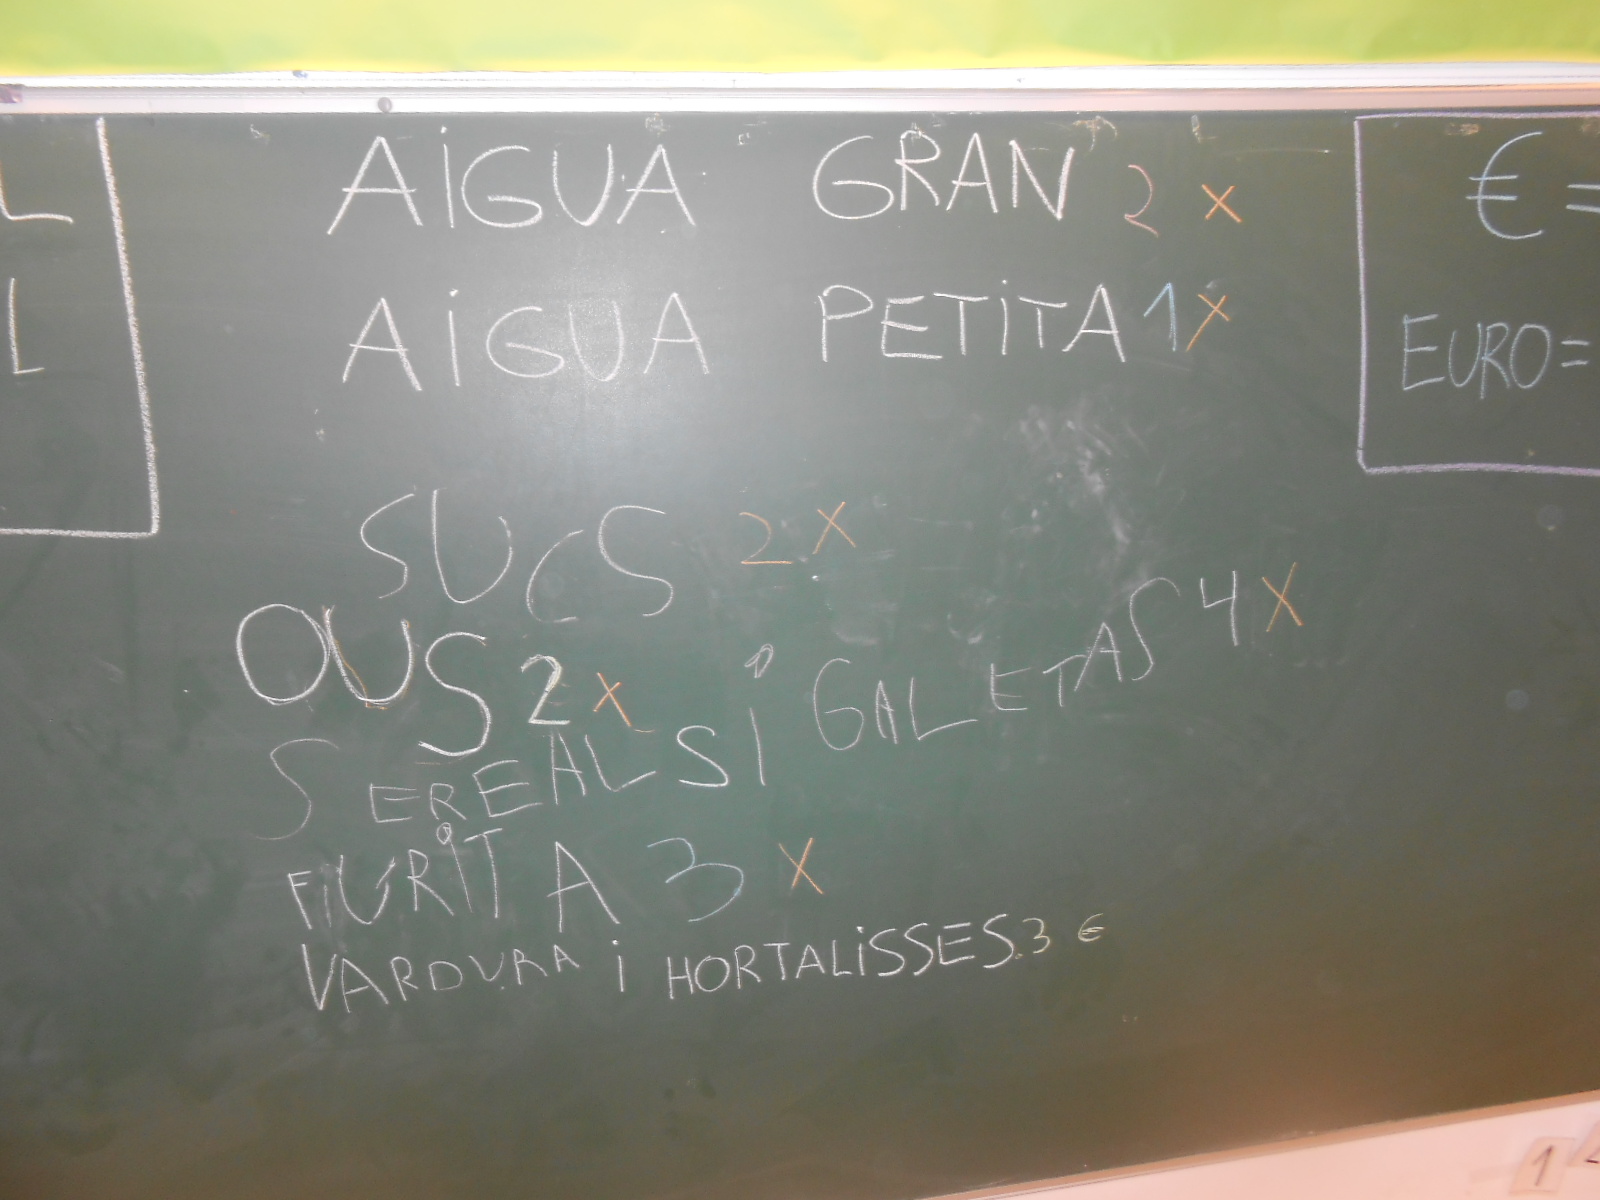 L
L
AiGUA GRAN 2 x
AiGUA PETiTA 1 x
€ =
EURO=
SUCS 2 X
OUS 2 x
SEREALS i GALETAS 4 X
FURiTA 3 X
VARDURA i HORTALiSSES.3 €
1